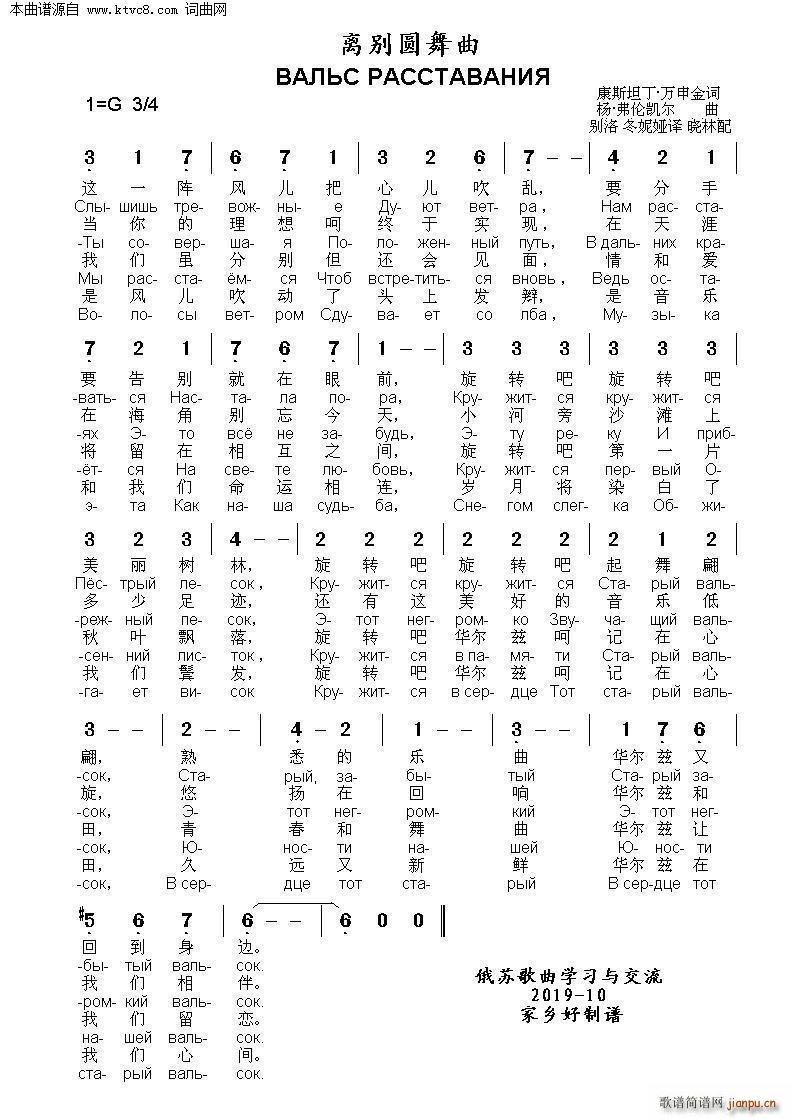 本曲谱源自 www.ktvc8.com 词曲网
离别圆舞曲
ВАЛЬС РАССТАВАНИЯ
1=G 3/4
康斯坦丁·万申金词
杨·弗伦凯尔 曲
别洛 冬妮娅译 晓林配
3 1 7 | 6 7 1 | 3 2 6 | 7 - - | 4 2 1 |
这 一 阵 风 儿 把 心 儿 吹 乱, 要 分 手
Слы- шишь тре- вож- ны- е Ду- ют вет- ра, Нам рас- ста-
当 你 的 理 想 呵 终 于 实 现, 在 天 涯
-Ты со- вер- ша- я По- ло- жен- ный путь, В даль- них кра-
我 们 虽 分 别 但 还 会 见 面, 情 和 爱
Мы рас- ста- ём- ся Чтоб встре- тить- ся вновь, Ведь ос- та-
是 风 儿 吹 动 了 头 上 发 辫, 是 音 乐
Во- ло- сы вет- ром Сду- ва- ет со лба, Му- зы- ка
7 2 1 | 7 6 7 | 1 - - | 3 3 3 | 3 3 3 |
要 告 别 就 在 眼 前, 旋 转 吧 旋 转 吧
-вать- ся Нас- та- ла по- ра, Кру- жит- ся кру- жит- ся
在 海 角 别 忘 今 天, 小 河 旁 沙 滩 上
-ях Э- то всё не за- будь, Э- ту ре- ку И приб-
将 留 在 相 互 之 间, 旋 转 吧 第 一 片
-ёт- ся На све- те лю- бовь, Кру- жит- ся пер- вый О-
和 我 们 命 运 相 连, 岁 月 将 染 白 了
э- та Как на- ша судь- ба, Сне- гом слег- ка Об- жи-
3 2 3 | 4 - - | 2 2 2 | 2 2 2 | 2 1 2 |
美 丽 树 林, 旋 转 吧 旋 转 吧 起 舞 翩
Пёс- трый ле- сок, Кру- жит- ся кру- жит- ся Ста- рый валь-
多 少 足 迹, 还 有 这 美 好 的 音 乐 低
-реж- ный пе- сок, Э- тот нег- ром- ко Зву- ча- щий валь-
秋 叶 飘 落, 旋 转 吧 华 尔 兹 呵 记 在 心
-сен- ний лис- ток, Кру- жит- ся в па- мя- ти Ста- рый валь-
我 们 鬓 发, 旋 转 吧 华 尔 兹 呵 记 在 心
-га- ет ви- сок Кру- жит- ся в сер- дце Тот ста- рый валь-
3 - - | 2 - - | 4 - 2 | 1 - - | 3 - - | 1 7 6 |
翩, 熟 悉 的 乐 曲 华 尔 兹 又
-сок, Ста- рый, за- бы- тый Ста- рый за-
旋, 悠 扬 在 回 响 华 尔 兹 和
-сок, Э- тот нег- ром- кий Э- тот нег-
田, 青 春 和 舞 曲 华 尔 兹 让
-сок, Ю- нос- ти на- шей Ю- нос- ти
田, 久 远 又 新 鲜 华 尔 兹 在
-сок, В сер- дце тот ста- рый В сер-дце тот
#5 6 7 | 6 - - | 6 0 0 ‖
回 到 身 边。
-бы- тый валь- сок.
我 们 相 伴。
-ром- кий валь- сок.
我 们 留 恋。
на- шей валь- сок.
我 们 心 间。
ста- рый валь- сок.
俄苏歌曲学习与交流
2019-10
家乡好制谱
歌谱简谱网
jianpu.cn